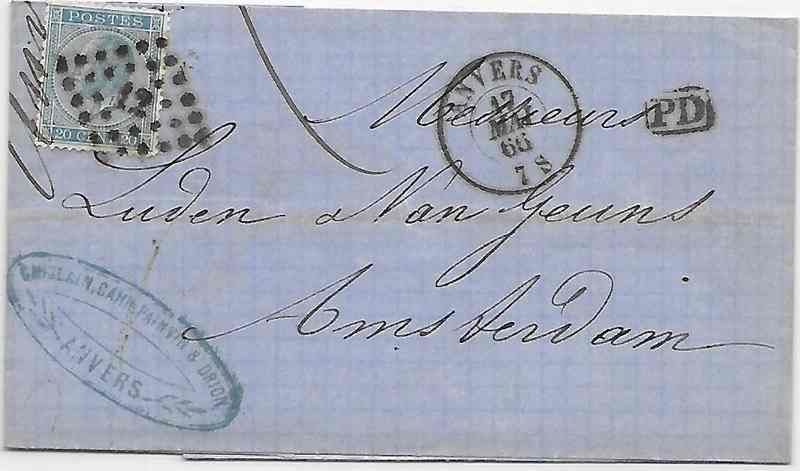 POSTES
20 C 20
12
ANVERS
17
MAI
66
7 S
PD
Messieurs
Luden & Van Geuns
Amsterdam
GHISLAIN, CAHN, & ORION
ANVERS